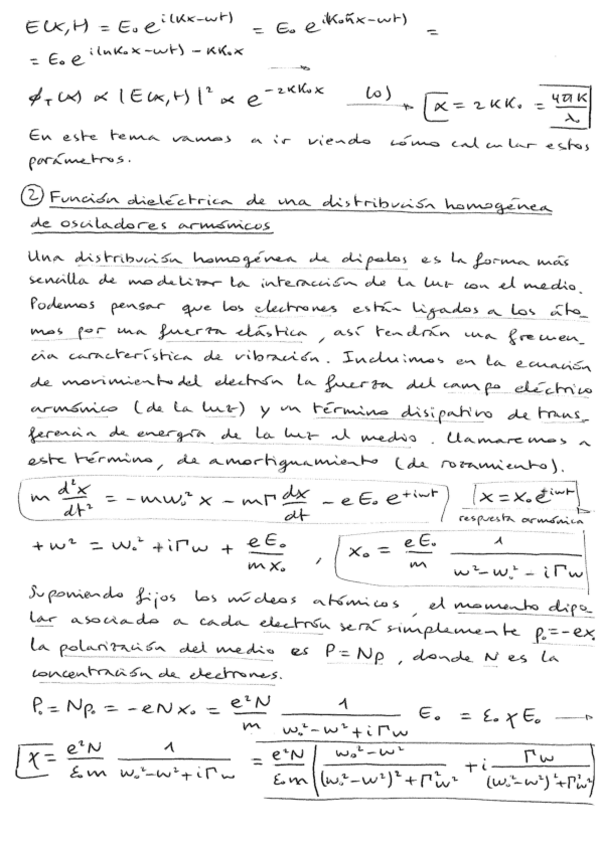 E(x,t) = E₀ e^{i(Kx-wt)} = E₀ e^{i(K₀ñx-wt)} =
= E₀ e^{i(nK₀x-wt) - κK₀x}
ϕ_T(x) ∝ |E(x,t)|² ∝ e^{-2κK₀x} (o) → α = 2κK₀ = 4πκ/λ
En este tema vamos a ir viendo cómo calcular estos
parámetros.
② Función dieléctrica de una distribución homogénea
de osciladores armónicos
Una distribución homogénea de dipolos es la forma más
sencilla de modelizar la interacción de la luz con el medio.
Podemos pensar que los electrones están ligados a los áto-
mos por una fuerza elástica, así tendrán una frecuen-
cia característica de vibración. Incluimos en la ecuación
de movimiento del electrón la fuerza del campo eléctrico
armónico (de la luz) y un término disipativo de trans-
ferencia de energía de la luz al medio. Llamaremos a
este término, de amortiguamiento (de rozamiento).
m d²x/dt² = -mw₀²x - mΓ dx/dt - eE₀ e^{+iwt} x = x₀ e^{+iwt}
respuesta armónica
+w² = w₀² + iΓw + eE₀/mx₀ , x₀ = eE₀/m 1/(w²-w₀²-iΓw)
Suponiendo fijos los núcleos atómicos, el momento dipo-
lar asociado a cada electrón será simplemente p₀=-ex,
la polarización del medio es P=Np, donde N es la
concentración de electrones.
P₀ = Np₀ = -eNx₀ = e²N/m 1/(w₀²-w²+iΓw) E₀ = ε₀χE₀ →
χ = e²N/ε₀m 1/(w₀²-w²+iΓw) = e²N/ε₀m ( (w₀²-w²)/((w₀²-w²)²+Γ²w²) + i Γw/((w₀²-w²)²+Γ²w²)